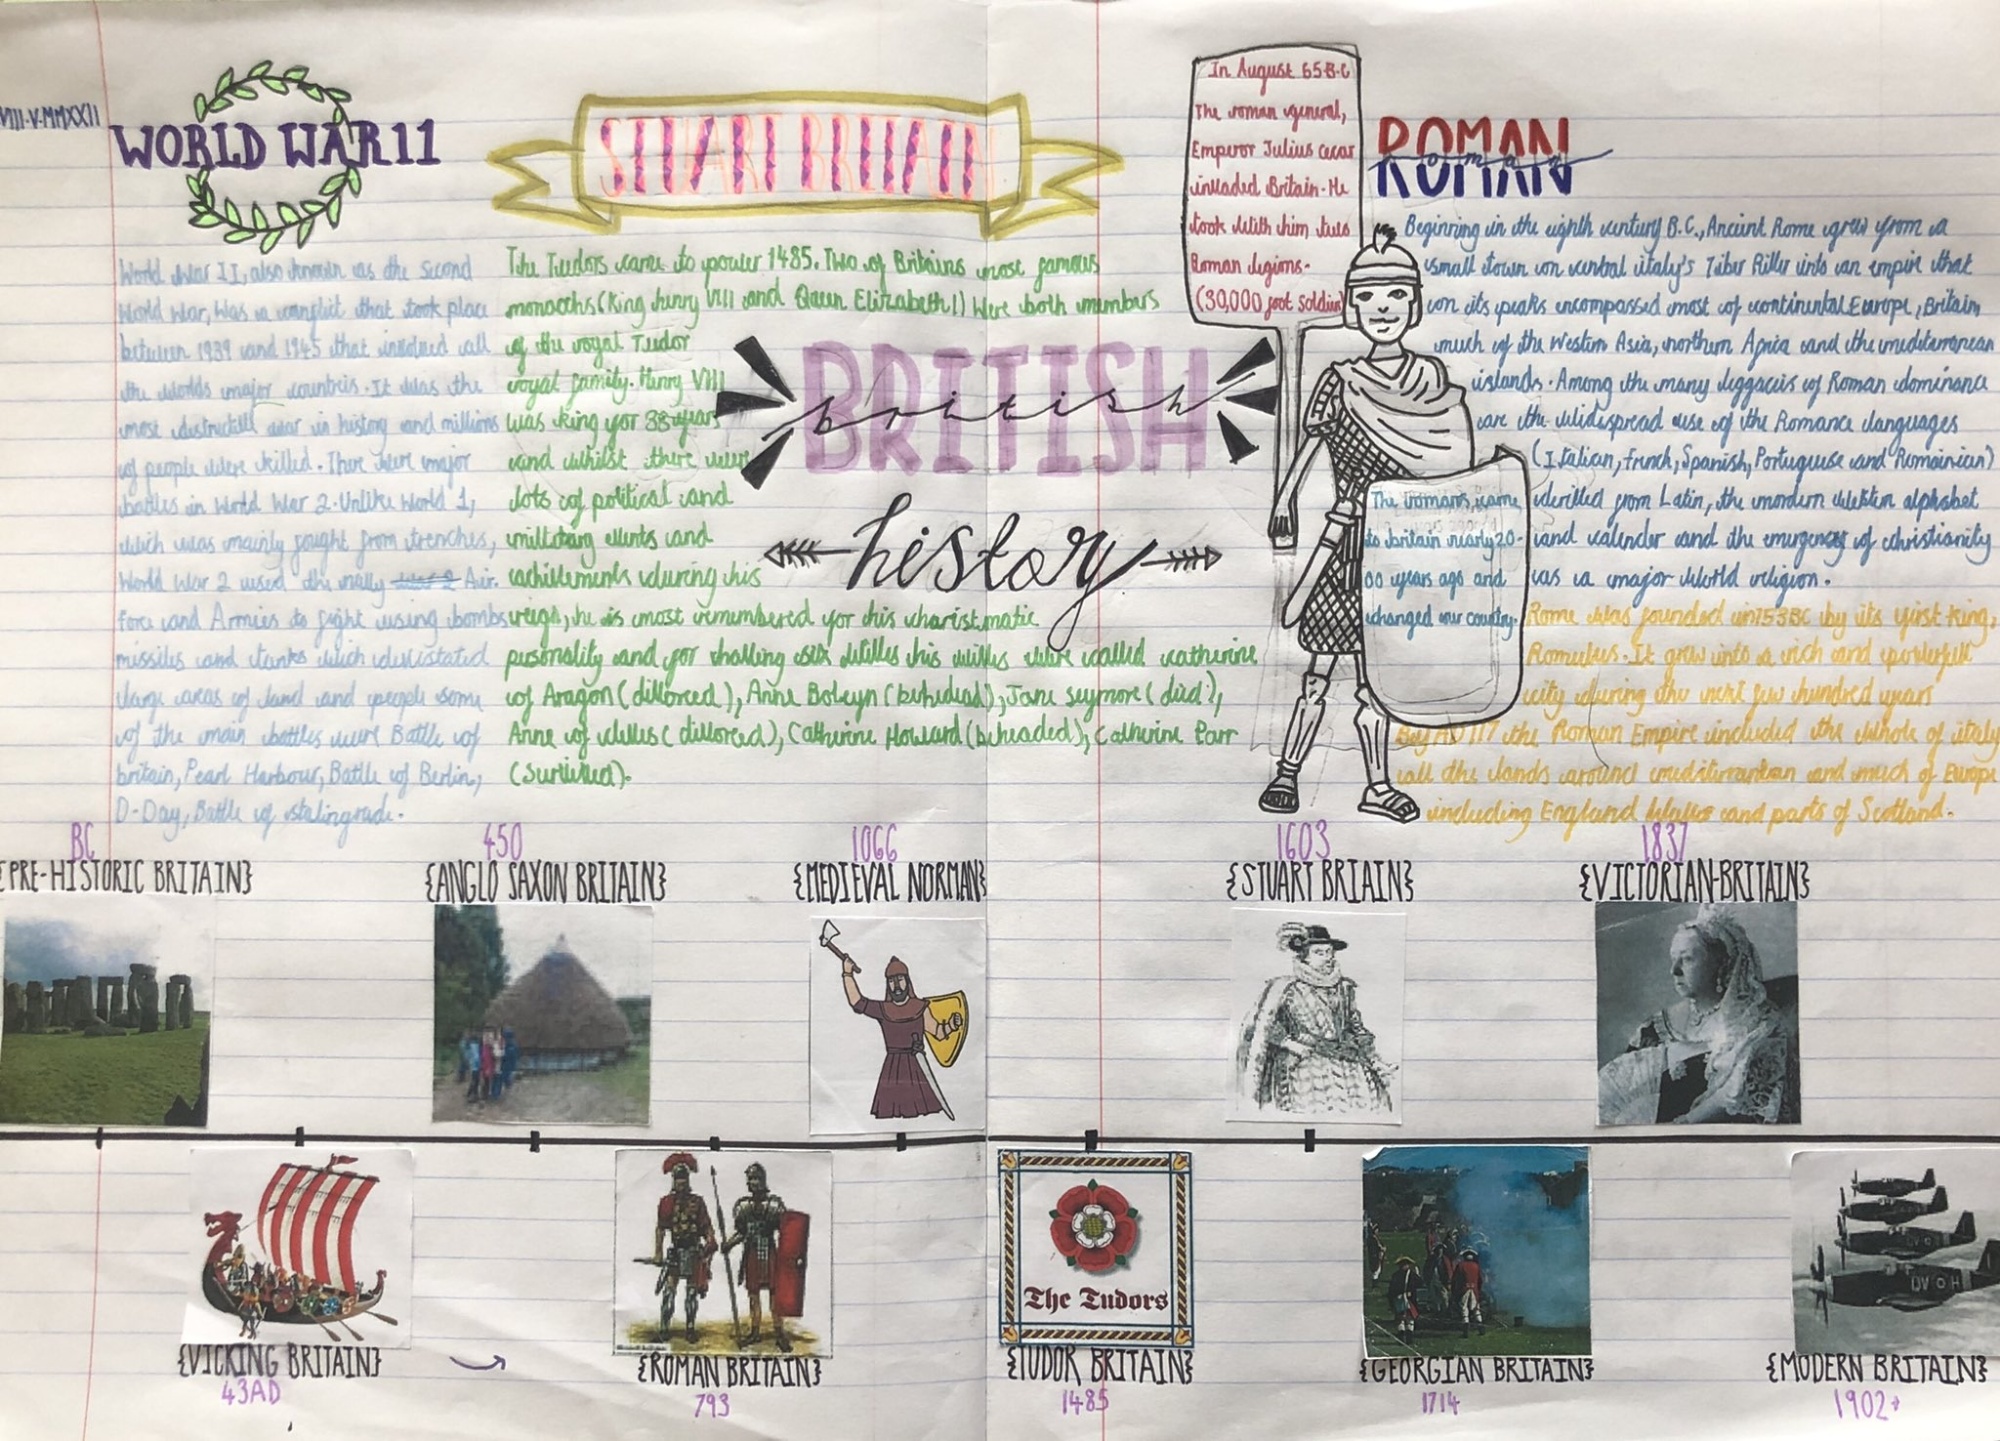 VIII·V·MMXXII
WORLD WAR 11
World War II, also known as the second
World War, Was a conflict that took place
between 1939 and 1945 that involved all
the worlds major countris. It was the
most distructive war in history and millions
of people were killed. There were major
battles in World War 2. Unlike World 1,
which was mainly fought from trenches,
World War 2 used the navy Air
force and Armies to fight using bombs
missiles and tanks which devistated
large areas of land and people some
of the main battles were Battle of
britain, Pearl Harbour, Battle of Berlin,
D-Day, Battle of stalingrade.
STUART BRITAIN
The Tudors came to power 1485. Two of Britains most famous
monachs (King henry VIII and Queen Elizabeth I) Were both members
of the royal Tudor
royal family. Henry VIII
was king for 38 years
and whilst there were
lots of political and
millitary events and
achivements during his
reign, he is most remembered for his charistmatic
personality and for having six wives his wives were called catherine
of Aragon (divorced), Anne Boleyn (behead), Jane Seymore (died),
Anne of cleves (divorced), Catherine Howard (beheaded), Catherine Parr
(Survived).
BRITISH
british
history
In August 55 B.C
The roman general,
Emperor Julius cesar
invaded Britain. He
took with him two
Roman legions.
(30,000 foot soldies)
The romans came
to britain nearly 20-
00 years ago and
changed our country.
ROMAN
roman
Beginning in the eighth century B.C., Ancient Rome grew from a
small town on central italy's Tiber River into an empire that
on its peaks encompassed most of continental Europe, Britain,
much of the Western Asia, northern Africa and the mediterranean
islands. Among the many leggacies of Roman dominance
are the widespread use of the Romance languages
(Italian, french, Spanish, Portuguese and Romainian)
derived from Latin, the modern western alphabet
and calender and the emergency of christianity
as a major world religion.
Rome was founded in 753BC by its first king,
Romulus. It grew into a rich and powerfull
city during the next few hundred years
By AD 117 the Roman Empire included the whole of italy
all the lands around mediterranean and much of Europe
including England Wales and parts of Scotland.
BC
{PRE-HISTORIC BRITAIN}
450
{ANGLO SAXON BRITAIN}
1066
{MEDIEVAL NORMAN}
1603
{STUART BRIAIN}
1837
{VICTORIAN-BRITAIN}
The Tudors
{VICKING BRITAIN}
43AD
{ROMAN BRITAIN}
793
{TUDOR BRITAIN}
1485
{GEORGIAN BRITAIN}
1714
{MODERN BRITAIN}
1902+